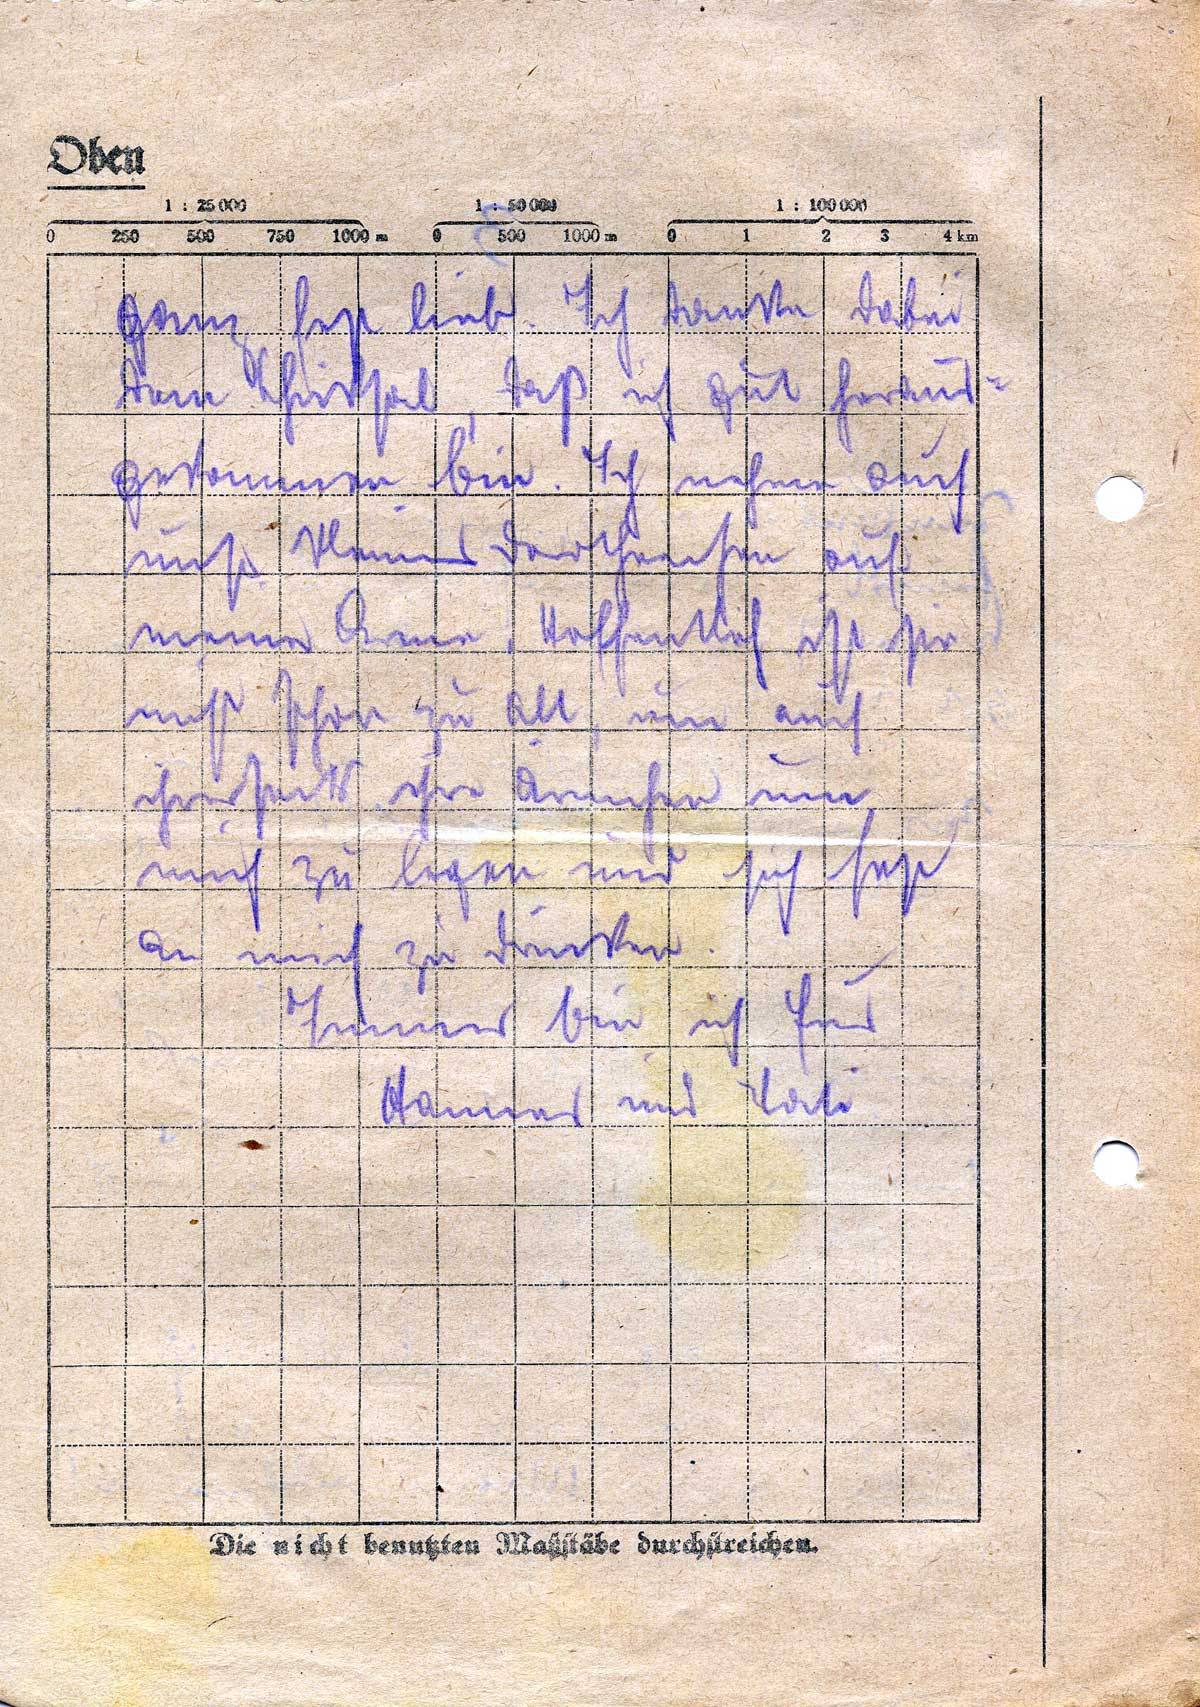 Oben
1 : 25 000 1 : 50 000 1 : 100 000
0 250 500 750 1000 m 0 500 1000 m 0 1 2 3 4 km
ganz fest lieb. Ich danke dabei
dem Schicksal, daß ich gut heraus-
gekommen bin. Ich nehme auch
unser kleines Dorotheechen auf
meine Arme. Hoffentlich ist sie
nicht schon zu alt, um auch
ihrerseits ihre Ärmchen um
mich zu legen und sich fest
an mich zu drücken.
Immer bin ich Euer
Hannes und Vati
Die nicht benutzten Maßstäbe durchstreichen.